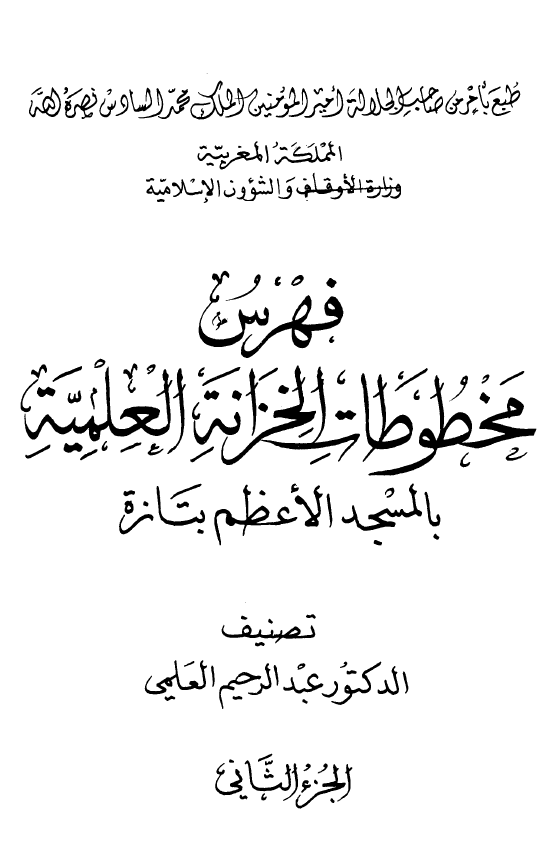 طبع بأمر من صاحب الجلالة أمير المؤمنين الملك محمد السادس نصره الله
المملكة المغربية
وزارة الأوقاف والشؤون الإسلامية
فهرس
مخطوطات الخزانة العلمية
بالمسجد الأعظم بتازة
تصنيف
الدكتور عبد الرحيم العلمي
الجزء الثاني